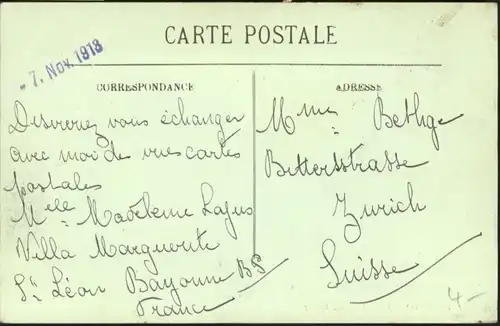 CARTE POSTALE
- 7. Nov. 1913
CORRESPONDANCE
Desireriez vous échanger
avec moi des vues cartes
postales
Melle Madeleine Lajus
Villa Marguerite
St Léon Bayonne BP
France
ADRESSE
Mme Bethge
Bitterstrasse
Zurich
Suisse
4-